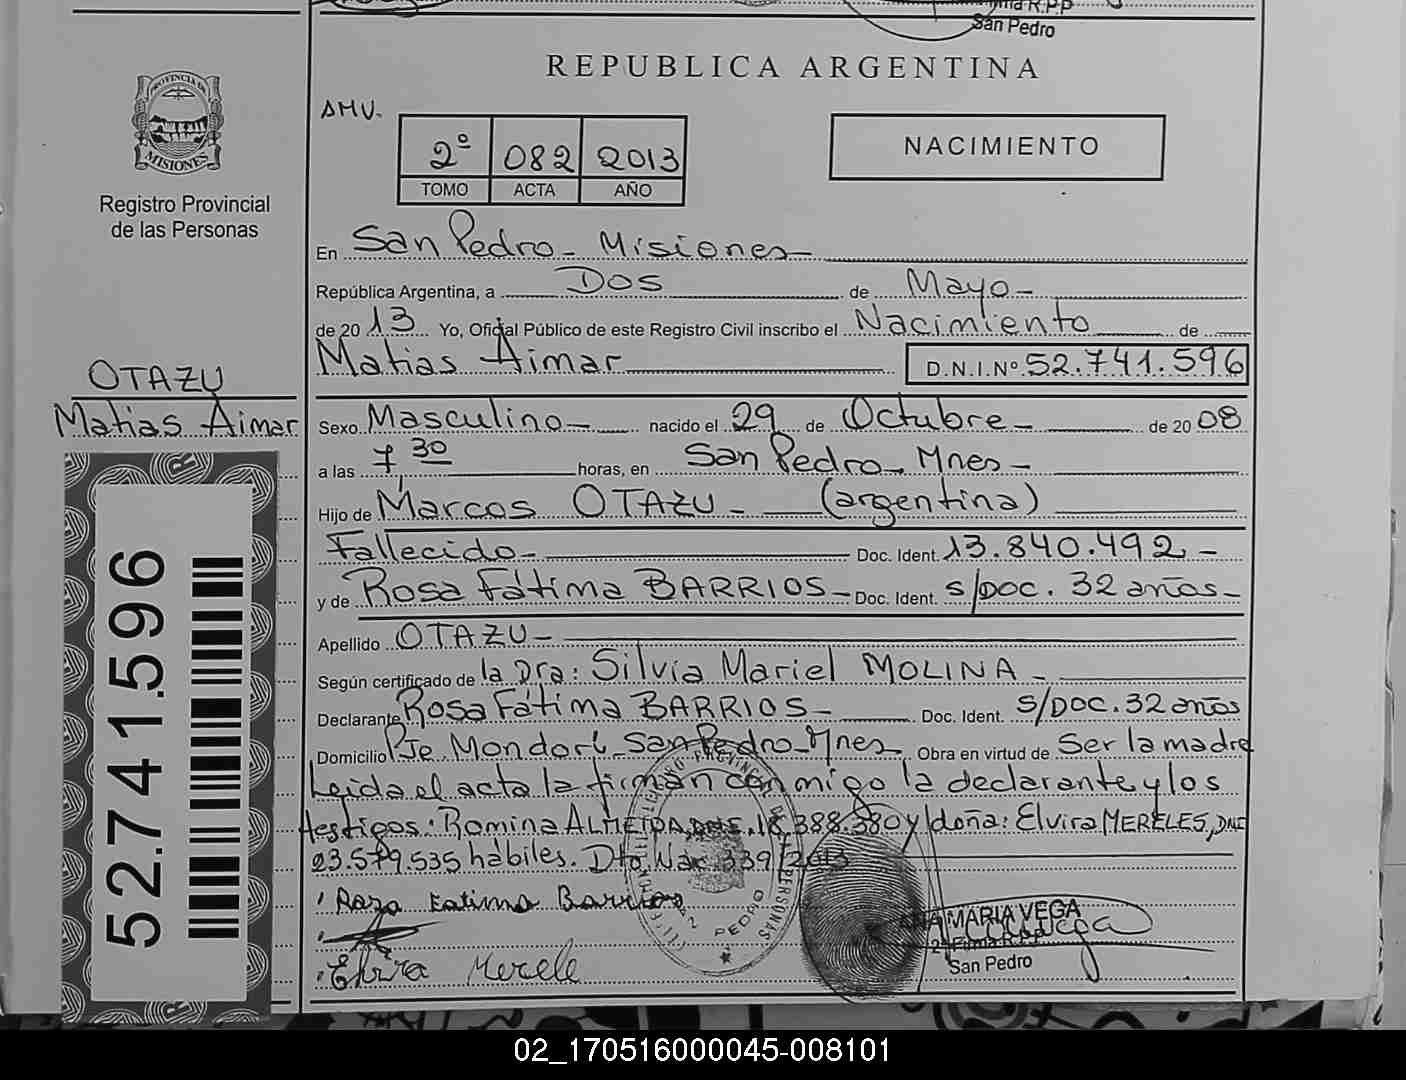 Firma R.P.P
San Pedro
REPUBLICA ARGENTINA
PROVINCIA DE
MISIONES
Registro Provincial
de las Personas
AMV.
2º 082 2013
TOMO ACTA AÑO
NACIMIENTO
En San Pedro - Misiones -
República Argentina, a Dos de Mayo -
de 20 13 Yo, Oficial Público de este Registro Civil inscribo el Nacimiento de
Matias Aimar D.N.I.Nº 52.741.596
OTAZU
Matias Aimar
Sexo Masculino - nacido el 29 de Octubre - de 20 08
a las 7 30 horas, en San Pedro - Mnes -
Hijo de Marcos OTAZU - (argentina)
Fallecido - Doc. Ident. 13.840.492 -
y de Rosa Fátima BARRIOS - Doc. Ident. s/Doc. 32 años -
Apellido OTAZU -
Según certificado de la Dra: Silvia Mariel MOLINA -
Declarante Rosa Fátima BARRIOS - Doc. Ident. S/DOC. 32 años
Domicilio Pje Mondorí - San Pedro - Mnes - Obra en virtud de Ser la madre
Leida el acta la firman conmigo la declarante y los
testigos: Romina ALMEIDA, DNI. 18.388.380 y doña: Elvira MERELES, DNI
23.579.535 hábiles. Dto. Nac. 339/2013
Rosa Fatima Barrios
Elvira Merele
SAN PEDRO
ANA MARIA VEGA
2ª Firma R.P.P
San Pedro
52.741.596
02_170516000045-008101